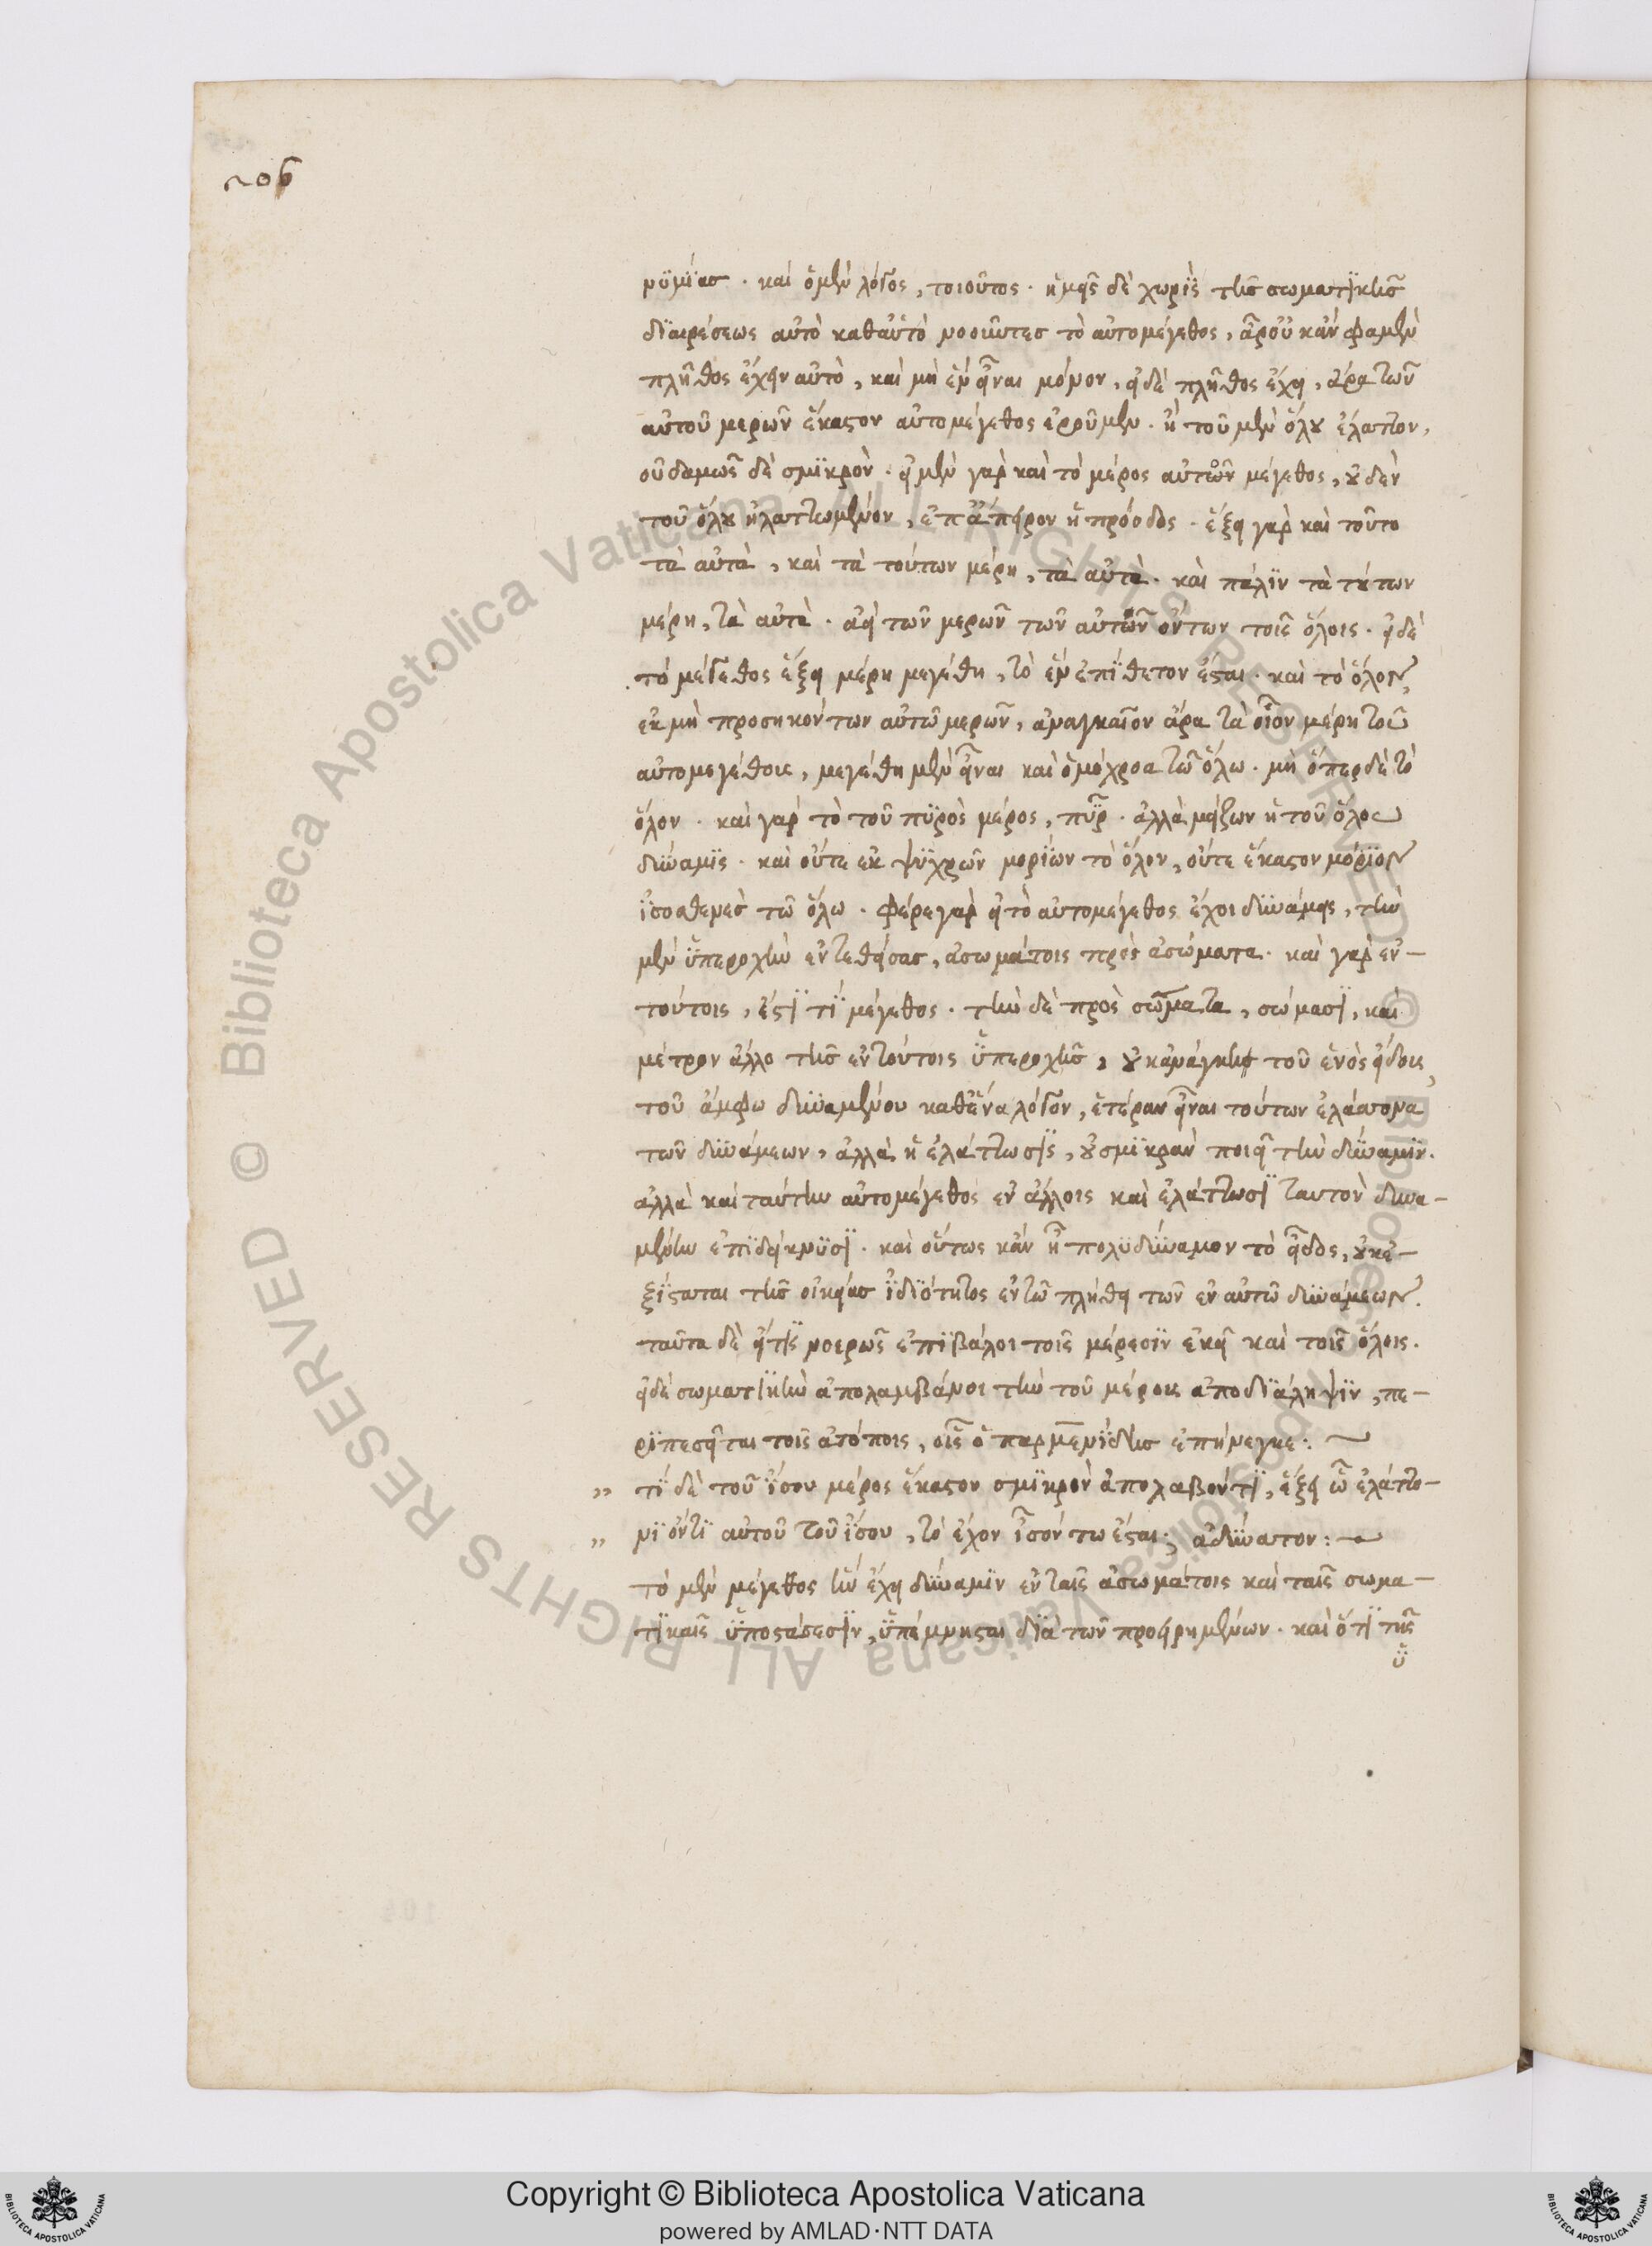 206
νυμίας. καὶ ὁ μὲν λόγος, τοιοῦτος. ἡμεῖς δὲ χωρὶς τῆς σωματικῆς
διαιρέσεως αὐτὸ καθαὑτὸ νοοῦντες τὸ αὐτομέγεθος, ἆρ οὐκ ἂν φαμὲν
πλῆθος ἔχειν αὐτὸ, καὶ μὴ ἓν εἶναι μόνον, εἰ δὲ πλῆθος ἔχει, ἆρα τῶν
αὐτοῦ μερῶν ἕκαστον αὐτομέγεθος ἐροῦμεν. ἢ τοῦ μὲν ὅλου ἔλαττον,
οὐδαμῶς δὲ σμικρὸν. εἰ μὲν γὰρ καὶ τὸ μέρος αὐτῶν μέγεθος, οὐδὲν
τοῦ ὅλου ἠλαττωμένον, ἐπ ἄπειρον ἡ πρόοδος. ἕξει γὰρ καὶ τοῦτο
τὰ αὐτὰ, καὶ τὰ τούτων μέρη, τὰ αὐτὰ. καὶ πάλιν τὰ τούτων
μέρη, τὰ αὐτὰ. ἀεὶ τῶν μερῶν τῶν αὐτῶν ὄντων τοῖς ὅλοις. εἰ δὲ
τὸ μέγεθος ἕξει μέρη μεγέθη, τὸ ἓν ἐπίθετον ἔσται. καὶ τὸ ὅλον,
ἐκ μὴ προσηκόντων αὐτῷ μερῶν, ἀναγκαῖον ἄρα τὰ οἷον μέρη τοῦ
αὐτομεγέθους, μεγέθη μὲν εἶναι καὶ ὁμόχροα τῷ ὅλω. μὴ ὅπερ δὲ τὸ
ὅλον. καὶ γὰρ τὸ τοῦ πυρὸς μέρος, πῦρ. ἀλλὰ μείζων ἡ τοῦ ὅλου
δύναμις. καὶ οὔτε ἐκ ψυχρῶν μορίων τὸ ὅλον, οὔτε ἕκαστον μόριον
ἰσοσθενὲς τῷ ὅλω. φέρε γὰρ εἰ τὸ αὐτομέγεθος ἔχοι δυνάμεις, τὴν
μὲν ὑπεροχὴν ἐντεθείσας, ἀσωμάτοις πρὸς ἀσώματα. καὶ γὰρ ἐν-
τούτοις, ἔστι τὶ μέγεθος. τὴν δὲ πρὸς σώματα, σώμασι, καὶ
μέτρον ἄλλο τῆς ἐν τούτοις ὑπεροχῆς, οὐκ ἀνάγκη τοῦ ἑνὸς εἴδους,
τοῦ ἄμφω δυναμένου καθ ἕνα λόγον, ἑτέραν εἶναι τούτων ἐλάσσονα
τῶν δυνάμεων, ἀλλὰ ἡ ἐλάττωσις, οὐ σμικρὰν ποιεῖ τὴν δύναμιν.
ἀλλὰ καὶ ταύτην αὐτομέγεθος ἐν ἄλλοις καὶ ἐλάττωσι ταυτὸν δυνα-
μένην ἐπιδείκνυσι. καὶ οὕτως κἂν ᾖ πολυδύναμον τὸ εἶδος, οὐκ ἐ-
ξίσταται τῆς οἰκείας ἰδιότητος ἐν τῷ πλήθει τῶν ἐν αὐτῷ δυνάμεων.
ταῦτα δὲ εἴ τις νοερῶς ἐπιβάλοι τοῖς μέρεσιν ἐκεῖ καὶ τοῖς ὅλοις.
εἰ δὲ σωματικὴν ἀπολαμβάνοι τὴν τοῦ μέρους ἀποδιάληψιν, πε-
ριπεσεῖται τοῖς ἀτόποις, οἷς ὁ παρμενίδης ἐπήνεγκε:
„ τί δὲ τοῦ ἴσου μέρος ἕκαστον σμικρὸν ἀπολαβόντι, ἕξει ὧ ἐλάττο-
„ νι ὄντι αὐτοῦ τοῦ ἴσου, τὸ ἔχον ἴσόν τω ἔσται; ἀδύνατον:
τὸ μὲν μέγεθος ἣν ἔχει δύναμιν ἐν ταῖς ἀσωμάτοις καὶ ταῖς σωμα-
τικαῖς ὑποστάσεσιν, ὑπέμνησται διὰ τῶν προειρημένων. καὶ ὅτι τῆς
ὑ